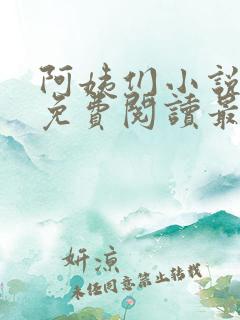 阿姨们小説
免費閱讀最
妍凉
未经同意禁止转载